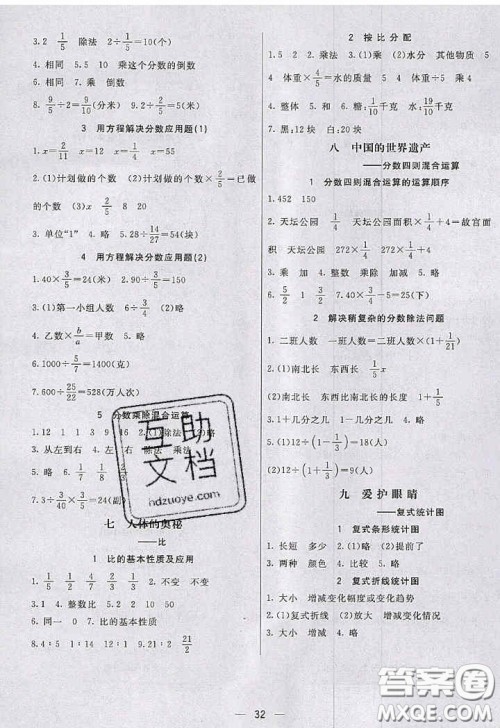 3.2  1/5  除法  2÷1/5=10(个)
4.相同  5.10  5  乘这个分数的倒数
6.相同  7.乘  倒数
8.9/5÷2=9/10(分米)  9.2÷1/5=10(段)
3  用方程解决分数应用题(1)
1.x=2/11  x=11  x=1/11  x=55
2.(1)计划做的个数  (2)计划做的个数×1/5=已做
的个数  (3)x  2/5  8  20
3.单位“1”  4.略  5.28÷14/27=54(块)
4  用方程解决分数应用题(2)
1.40×3/5=24(米)  2.90÷3/5=150
3.(1)第一小组人数  6÷3/4=8(人)  (2)略
4.乙数×b/a=甲数  5.略
6.1000÷5/7=1400(克)
7.600÷25/22=528(万人次)
5  分数乘除混合运算
1.12  1  1  3  9  16  2.(1)除法  (2)略
3.从左到右  4.左  右  除法  乘法
7.3÷3/40×3/20
七  人体的奥秘
——比
1  比的基本性质及应用
2.不变  不变
3.1  4  4.整数比  5.2  10
6.同一  0  7.比的基本性质
8.4∶5  1∶14  12∶1  9.27  21/2
2  按比分配
1.5  2  2.乘法  3.(1)水分  其他物质  5
4  体重×4/5=水的质量  (2)体重÷5  5.略
6.整体  和  7.略  8.10/19千克  水19/10千克
9.黑:12块  白:20块
八  中国的世界遗产
——分数四则混合运算
1  分数四则混合运算的运算顺序
1.452  150
2.天坛公园  1/4  天坛公园面积×1/4+故宫面
积  天坛公园  272×1/4  272×1/4+
3.乘  加  4.整数  乘除  加减  5.略
6.5/2  1  3/4  7.40×3/8÷5
2  解决稍复杂的分数除法问题
1.二班人数  一班人数=二班人数×(1+1/21)
2.(1)南北长  东西长  东西长
3.1+几分之几  1-几分之几  4.略
5.(1)12÷(1-1/3)=18(人)
(2)12÷(1+1/3)=9(人)
九  爱护眼睛
——复式统计图
1  复式条形统计图
1.长短  多少  2.(1)略  (2)提前了
3.两种  颜色  4.略
2  复式折线统计图
1.大小  增减变化幅度或变化趋势
2.(1)复式折线  (2)放大  增减变化情况
3.大小  增减变化  4.略
互助
文档
hdzuoye.com
答案圈
MXQE.COM
32